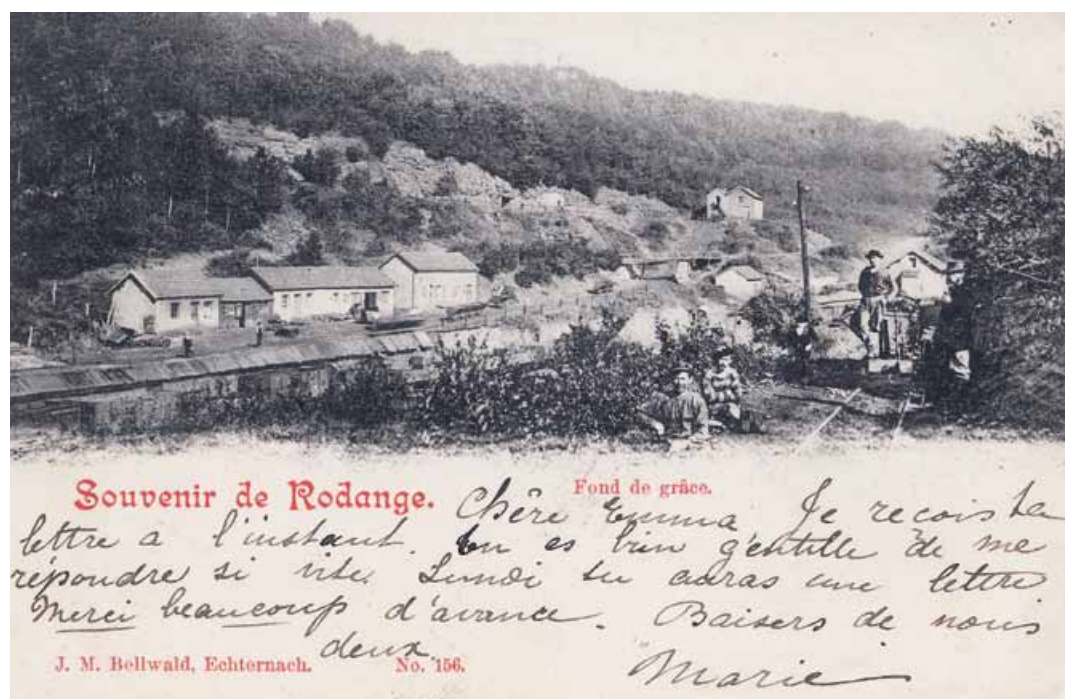 Souvenir de Rodange.
Fond de grâce.
Chère Emma Je reçois ta
lettre a l'instant. Tu es bien gentille de me
répondre si vite. Lundi tu auras une lettre.
Merci beaucoup d'avance. Baisers de nous
deux.
Marie
J. M. Bellwald, Echternach.
No. 156.